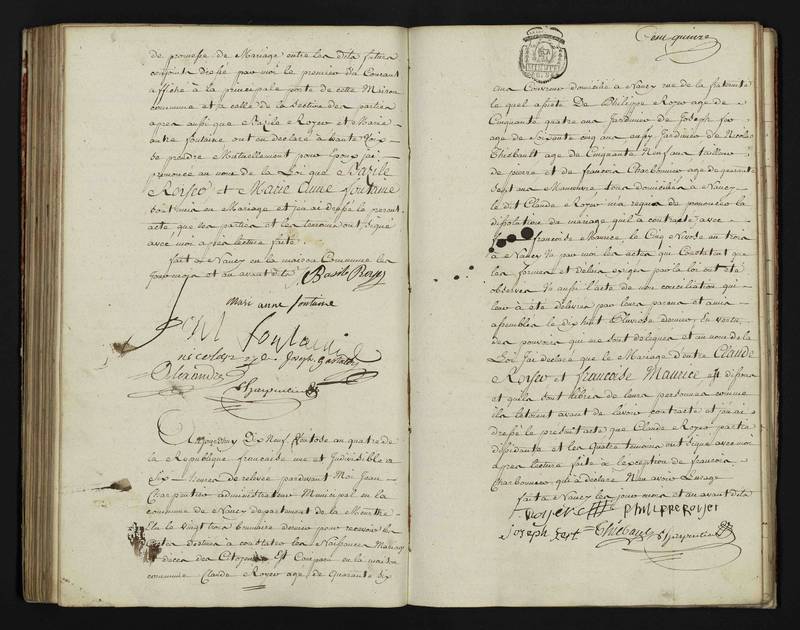 de promesse de Mariage entre les dits futurs
conjoints dressé par moi le premier du Courant
affiché à la principale porte de cette Maison
commune et à celle de la Section des parties
apres aussi que Bazile Royer et Marie
anne fontaine ont eu déclaré à haute voix
se prendre Mutuellement pour Epoux j'ai
prononcé au nom de la Loi que Bazile
Royer et Marie Anne fontaine
sont unis en Mariage et j'en ai dressé le present
acte que les parties et les temoins ont signé
avec moi après lecture faite
fait à Nancy en la maison Commune les
jour mois et an avant dits Basile Royer
mari anne fontaine
fontaine
nicolas Joseph
Alexandre
Charpentier
Aujourdhuy Dix Neuf Ventose an quatre de
la Republique française une et Indivisible à
Six heures de relevée pardevant Moi Jean
Charpentier administrateur Municipal en la
commune de Nancy departement de la Meurthe
Elu le vingt trois brumaire dernier pour recevoir les
actes destinés à constater les Naissances Mariages
et décès des Citoyens Est Comparu en la maison
commune Claude Royer agé de Quarante six
Cent quinze
ans Couvreur domicilié à Nancy rue de la fraternité
lequel assisté de Philippe Royer agé de
Cinquante quatre ans Jardinier de Joseph
agé de Soixante cinq ans aussy Jardinier de Nicolas
Thiebault agé de Cinquante Neuf ans tailleur
de pierre et de francois Charbonnier agé de quarante
sept ans Manœuvre tous domiciliés à Nancy
le dit Claude Royer m'a requis de prononcer la
dissolution du mariage qu'il a contracté avec
françoise Maurice, le Cinq Nivose an trois
à Nancy Vu par moi les actes qui Constatent que
les formes et delais exigés par la loi ont été
observés Vu aussi l'acte de non conciliation qui
leur à été délivré par leurs parens et amis
assemblés le dix huit Pluviose dernier, En vertu
des pouvoirs qui me sont delegués et au nom de la
Loi J'ai declaré que le Mariage d'entre Claude
Royer et françoise Maurice est dissous
et qu'ils sont libres de leurs personnes comme
ils l'etoient avant de l'avoir contracté et j'en ai
dressé le present acte que Claude Royer partie
et les Quatre temoins ont signé avec moi
apres lecture faite à l'exception de francois
Charbonnier qui à declaré N'en avoir L'usage
fait à Nancy les jour mois et an avant dits
PHILIPPE ROYER
joseph Thiebault Charpentier